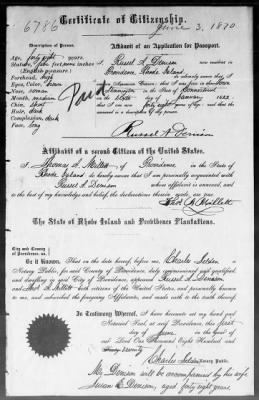 6786
Certificate of Citizenship.
June 3, 1870
Description of Person.
Affidavit of an Application for Passport.
Age, forty eight years.
Stature, five feet inches
(English measure.)
Forehead, high
Eyes, Color,
Nose,
Mouth, medium
Chin, short
Hair, dark
Complexion, dark
Face, long
Paid
I, Russel A. Denison now resident in
Providence, Rhode Island
do sincerely swear that I
in the State of Connecticut
on the day of January 1822
that I am now forty eight years of age, and that the above
is a description of my person.
Russel A. Denison
Affidavit of a second Citizen of the United States.
I, Thomas A. Millett of Providence in the State of
Rhode Island do hereby swear that I am personally acquainted with
Russel A. Denison whose affidavit is annexed, and
to the best of my knowledge and belief, the declarations therein made, are true.
Thos A. Millett
The State of Rhode Island and Providence Plantations.
City and County
of Providence, ss.
Be it Known, That on the date hereof, before me, Charles Selden a
Notary Public, for said County of Providence, duly commissioned and qualified,
and dwelling in said City of Providence, appeared Russel A. Denison
and Thos A. Millett both citizens of the United States, and personally known
to me, and subscribed the foregoing Affidavits, and made oath to the truth thereof.
In Testimony Whereof, I have hereunto set my hand and
Notarial Seal, at said Providence, this first
day of June in the Year of our
Lord One Thousand Eight Hundred and
Seventy
Charles Selden Notary Public.
Mr Denison will be accompanied by his wife
Susan E. Denison, aged forty eight years.